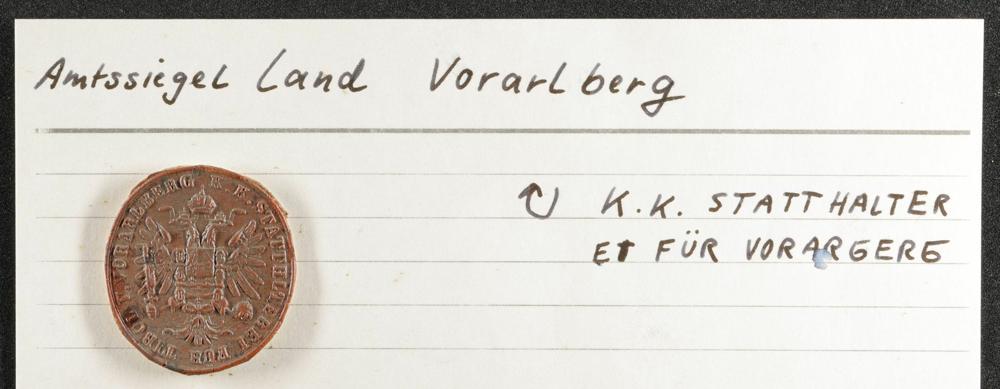 Amtssiegel Land Vorarlberg
K.K. STATTHALTER
ET FÜR VORARGERG
VORARLBERG K. K. STATTHALTEREI FÜR TIROL U.